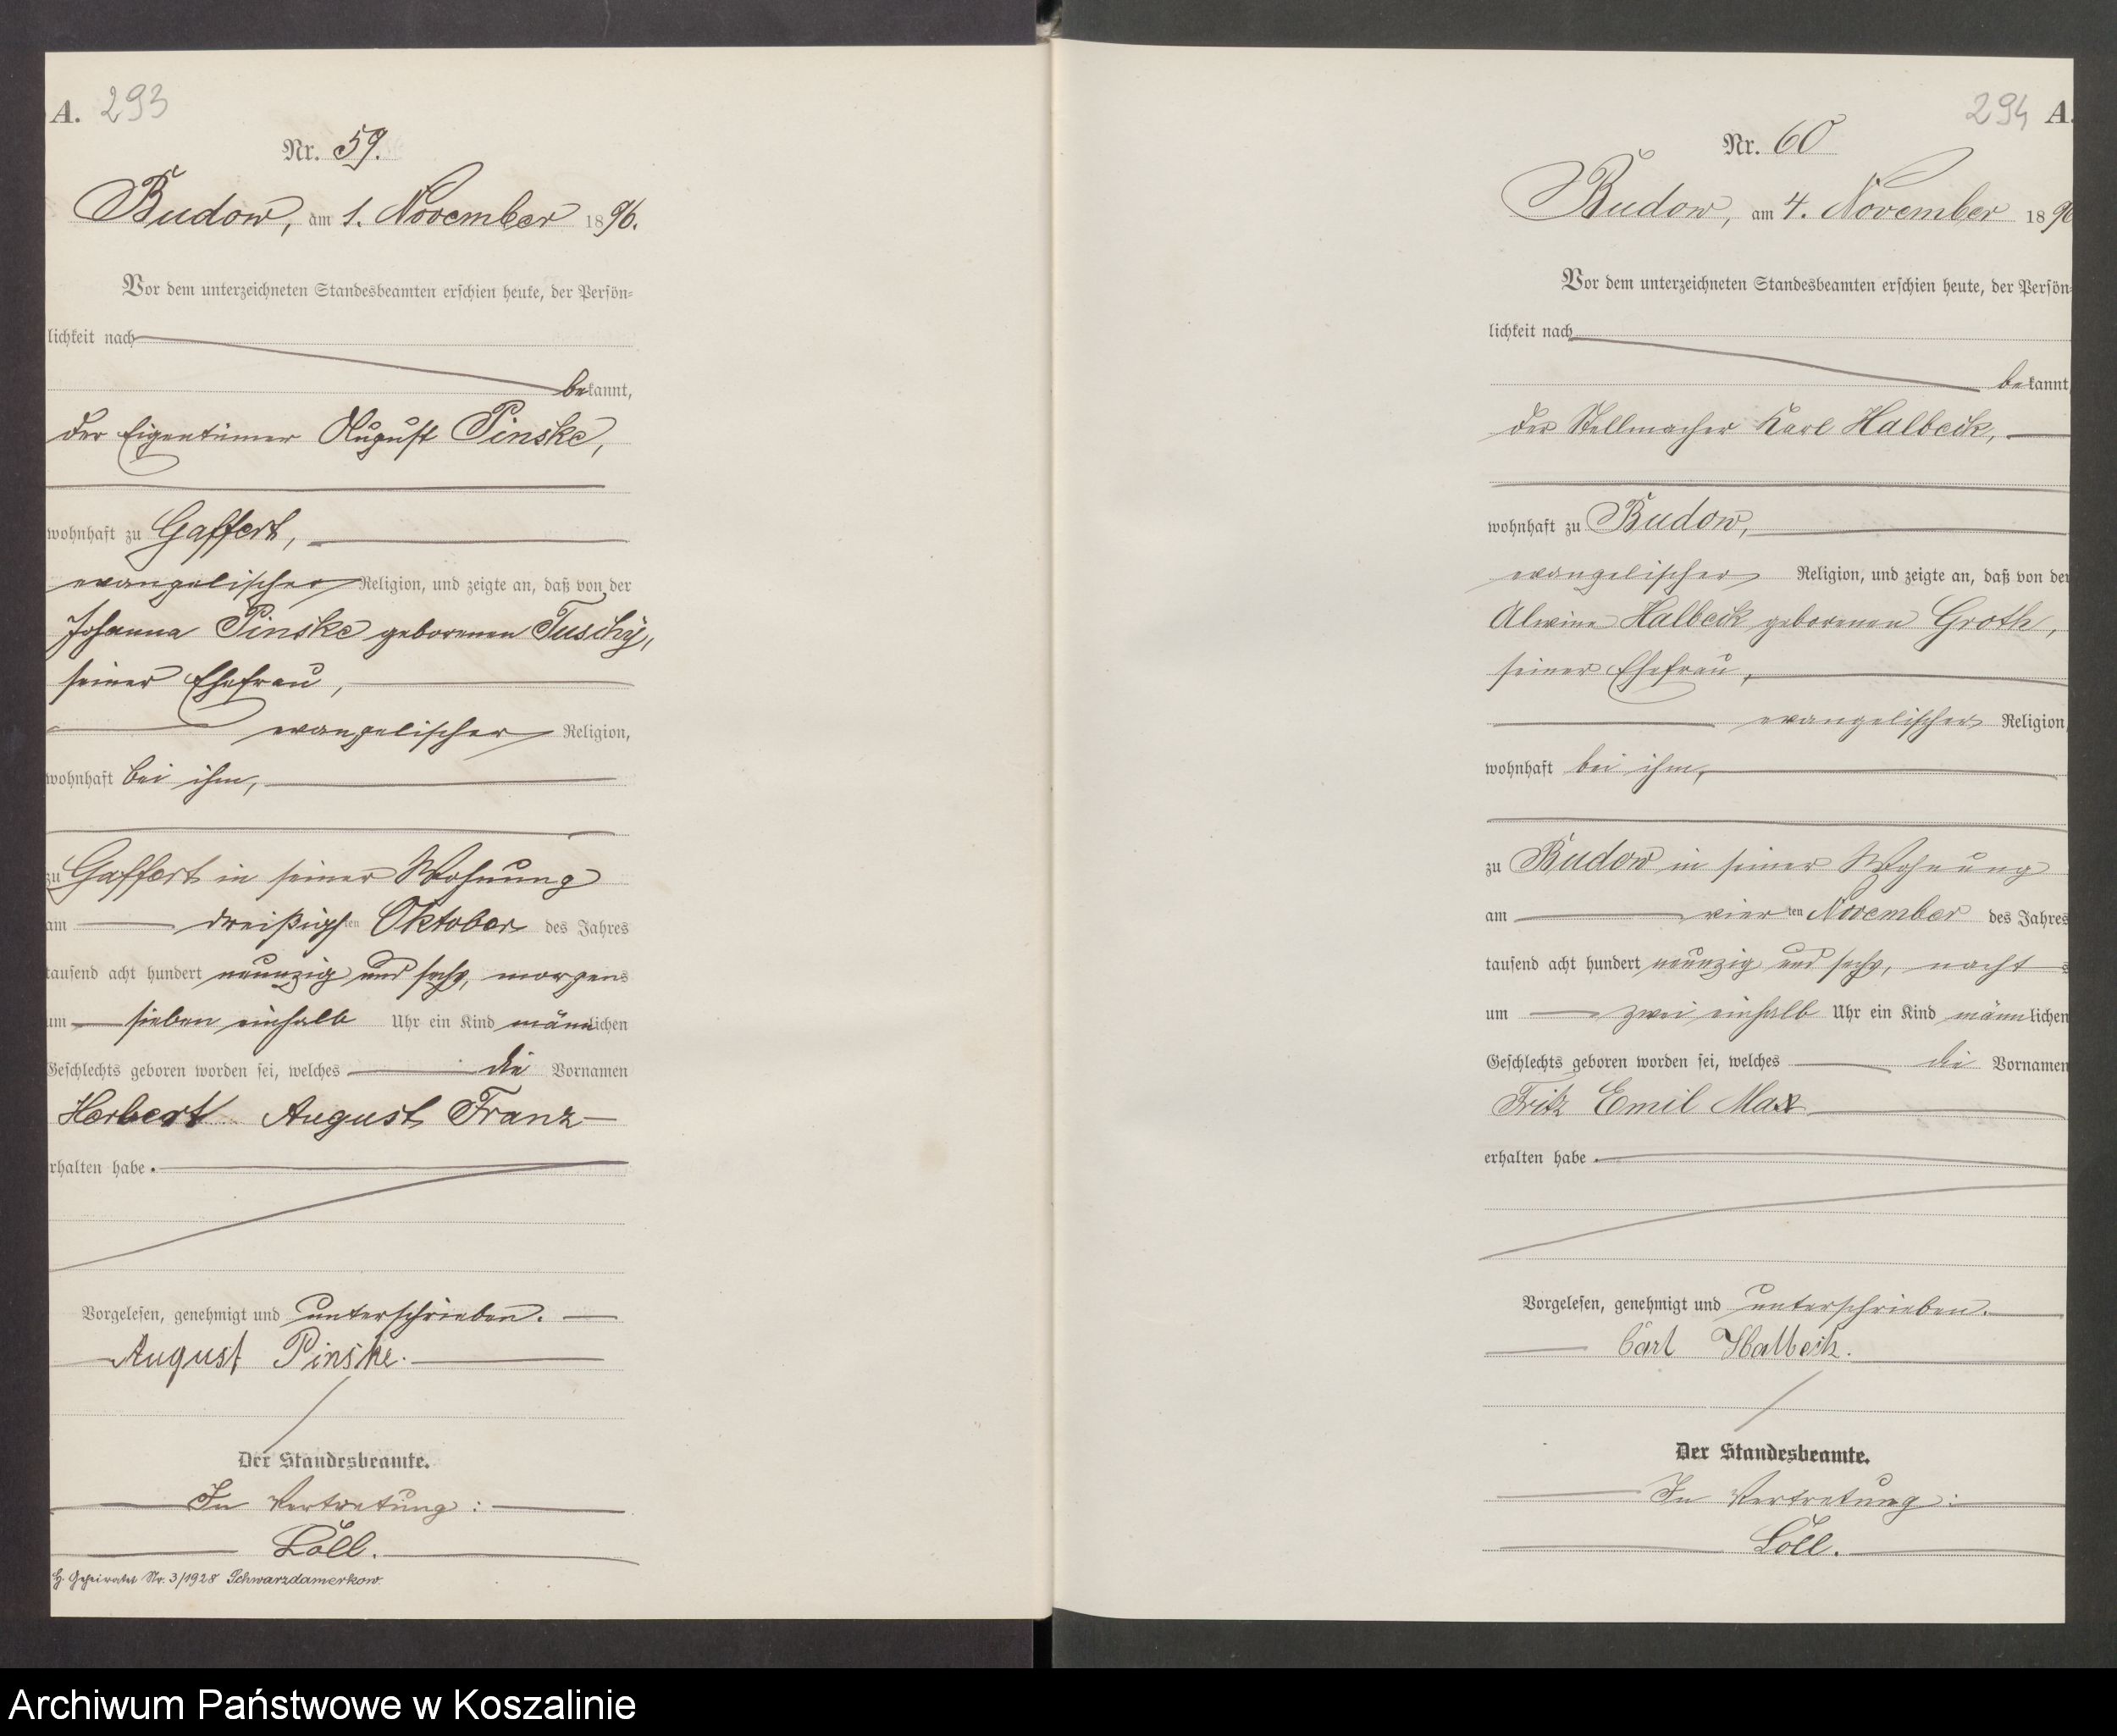 A. 293
Nr. 59.
Budow, am 1. November 1896.
Vor dem unterzeichneten Standesbeamten erschien heute, der Persön-
lichkeit nach
bekannt,
der Eigentümer August Pinske,
wohnhaft zu Gaffert,
evangelischer Religion, und zeigte an, daß von der
Johanna Pinske geborenen Tuschy,
seiner Ehefrau,
evangelischer Religion,
wohnhaft bei ihm,
zu Gaffert in seiner Wohnung
am dreißigsten Oktober des Jahres
tausend acht hundert neunzig und sechs, morgens
um sieben einhalb Uhr ein Kind männlichen
Geschlechts geboren worden sei, welches die Vornamen
Herbert August Franz
erhalten habe.
Vorgelesen, genehmigt und unterschrieben.
August Pinske.
Der Standesbeamte.
In Vertretung:
Löll.
H. Geheiratet Nr. 3/1928 Schwarzdamerkow.
294 A.
Nr. 60
Budow, am 4. November 1896
Vor dem unterzeichneten Standesbeamten erschien heute, der Persön-
lichkeit nach
bekannt
der Stellmacher Karl Halbeck,
wohnhaft zu Budow,
evangelischer Religion, und zeigte an, daß von der
Alwine Halbeck geborenen Groth,
seiner Ehefrau,
evangelischer Religion,
wohnhaft bei ihm,
zu Budow in seiner Wohnung
am vierten November des Jahres
tausend acht hundert neunzig und sechs, nachts
um zwei einhalb Uhr ein Kind männlichen
Geschlechts geboren worden sei, welches die Vornamen
Fritz Emil Max
erhalten habe.
Vorgelesen, genehmigt und unterschrieben.
Carl Halbeck.
Der Standesbeamte.
In Vertretung:
Löll.
Archiwum Państwowe w Koszalinie